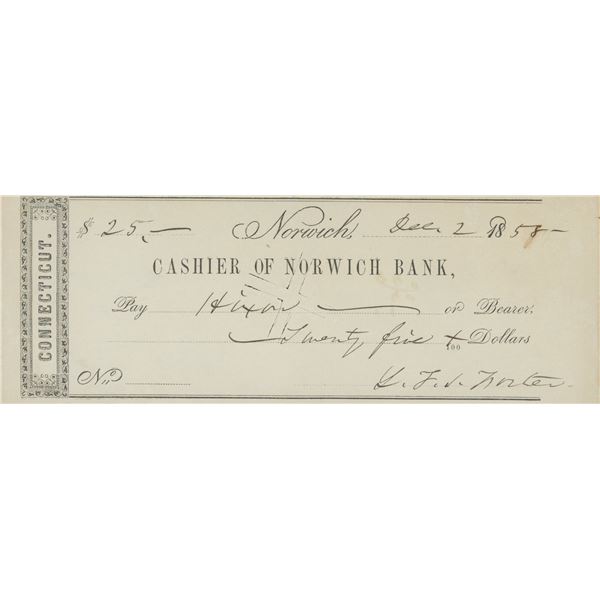 CONNECTICUT.
$ 25,— Norwich, Dec. 2 1858—
CASHIER OF NORWICH BANK,
Pay Hixon — or Bearer,
Twenty five x/100 Dollars
No
L. F. S. Foster